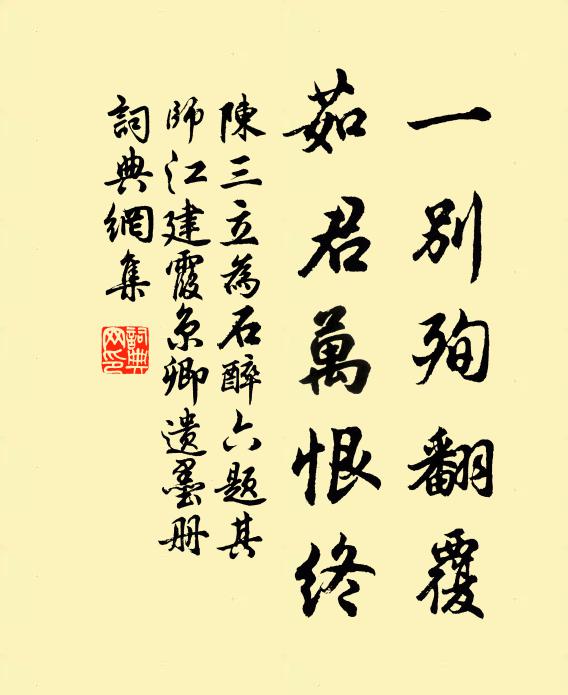 一別殉翻覆
茹君萬恨終
陳三立為石醉六題其
師江建霞京卿遺墨册
詞典網集
詞典網印